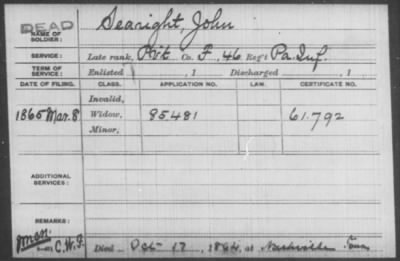 DEAD
NAME OF SOLDIER: Searight, John
SERVICE: Late rank, Pvt Co. F, 46 Reg't Pa. Inf.
TERM OF SERVICE: Enlisted , 1 Discharged , 1
DATE OF FILING. CLASS. APPLICATION NO. LAW. CERTIFICATE NO.
Invalid,
1865 Mar. 8 Widow, 85481 61.792
Minor,
ADDITIONAL SERVICES:
REMARKS:
C.W.F. Died Oct 17, 1864, at Nashville Tenn